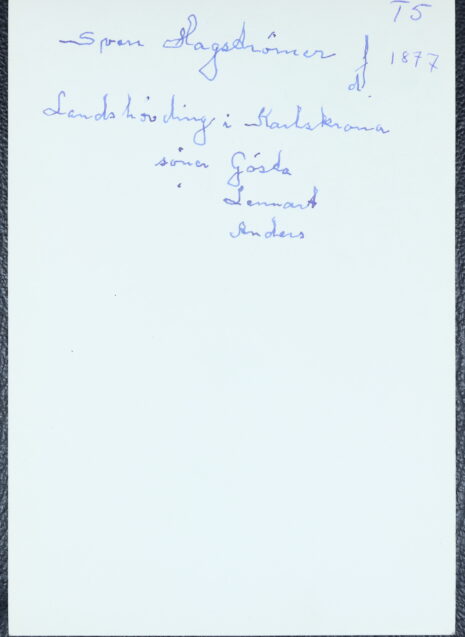 T5
Sven Hagströmer f 1877
d.
Landshövding i Karlskrona
söner Gösta
Lennart
Anders